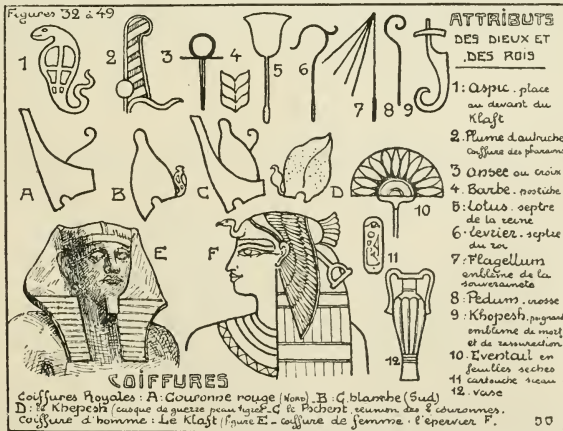 Figures 32 à 49
ATTRIBUTS
DES DIEUX ET
DES ROIS
1: aspic. place
au devant du
Klaft
2. Plume d'autruche
Coiffure des pharaons
3 ansée ou croix
4. Barbe. postiche
5: Lotus. septre
de la reine
6. levrier. septre
du roi
7: Flagellum
emblème de la
souveraineté
8: Pedum. crosse
9: Khopesh, poignard
emblème de mort
et de ressurection
10. Eventail en
feuilles sèches
11 cartouche sceau
12. vase
1
2
3
4
5
6
7
8
9
A
B
C
D
10
E
F
11
12
COIFFURES
Coiffures Royales: A: Couronne rouge (Nord) _ B: C. blanche (Sud)
D: le Khepesh (casque de guerre peau tigre _ C le Pschent, reunion des 2 couronnes.
Coiffure d'homme: Le Klaft (figure E _ coiffure de femme: l'épervier F.